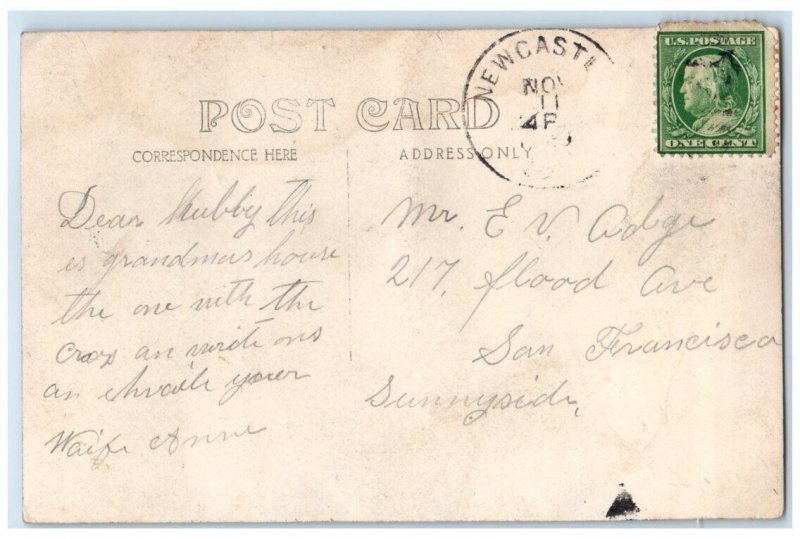 NEWCASTL
NOV
11
4P
U.S. POSTAGE
ONE CENT
POST CARD
CORRESPONDENCE HERE
ADDRESS ONLY
Dear Hubby this
is grandmas house
the one with the
an
an your
Waife Anne
Mr. E V. Adge
217, flood Ave
San Francisco
Sunnyside,